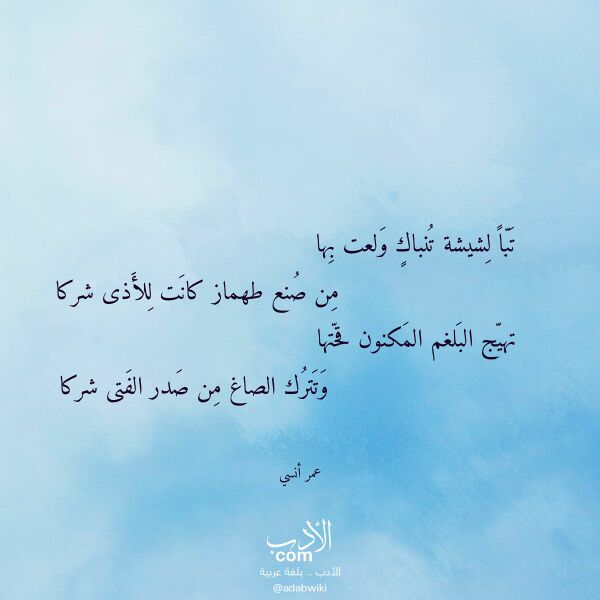 تَبّاً لِشيشة تُنباكٍ وَلعت بِها
مِن صُنع طهماز كانَت لِلأَذى شركا
تهيّج البَلغم المَكنون قحّتها
وَتَترُك الصاغ مِن صَدر الفَتى شركا
عمر أنسي
الأدب
com
الأدب .. بلغة عربية
@adabwiki